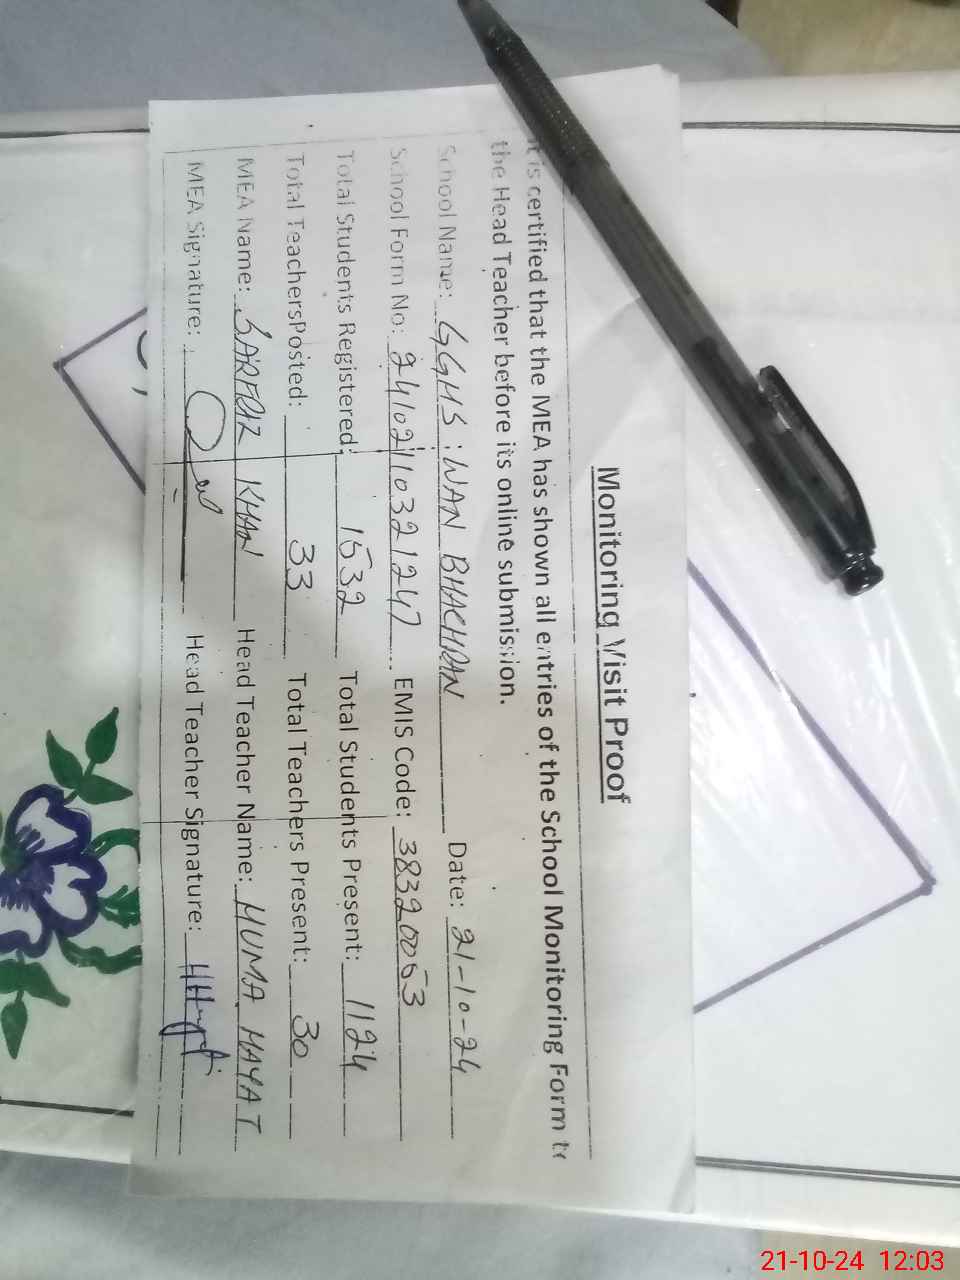 Monitoring Visit Proof
It is certified that the MEA has shown all entries of the School Monitoring Form to
the Head Teacher before its online submission.
School Name: GGHS WAN BHACHRAN Date: 21-10-24
School Form No: 24102110321247 EMIS Code: 38320053
Total Students Registered: 1532 Total Students Present: 1124
Total TeachersPosted: 33 Total Teachers Present: 30
MEA Name: SARFRAZ KHAN Head Teacher Name: HUMA HAYAT
MEA Signature: Head Teacher Signature:
21-10-24 12:03